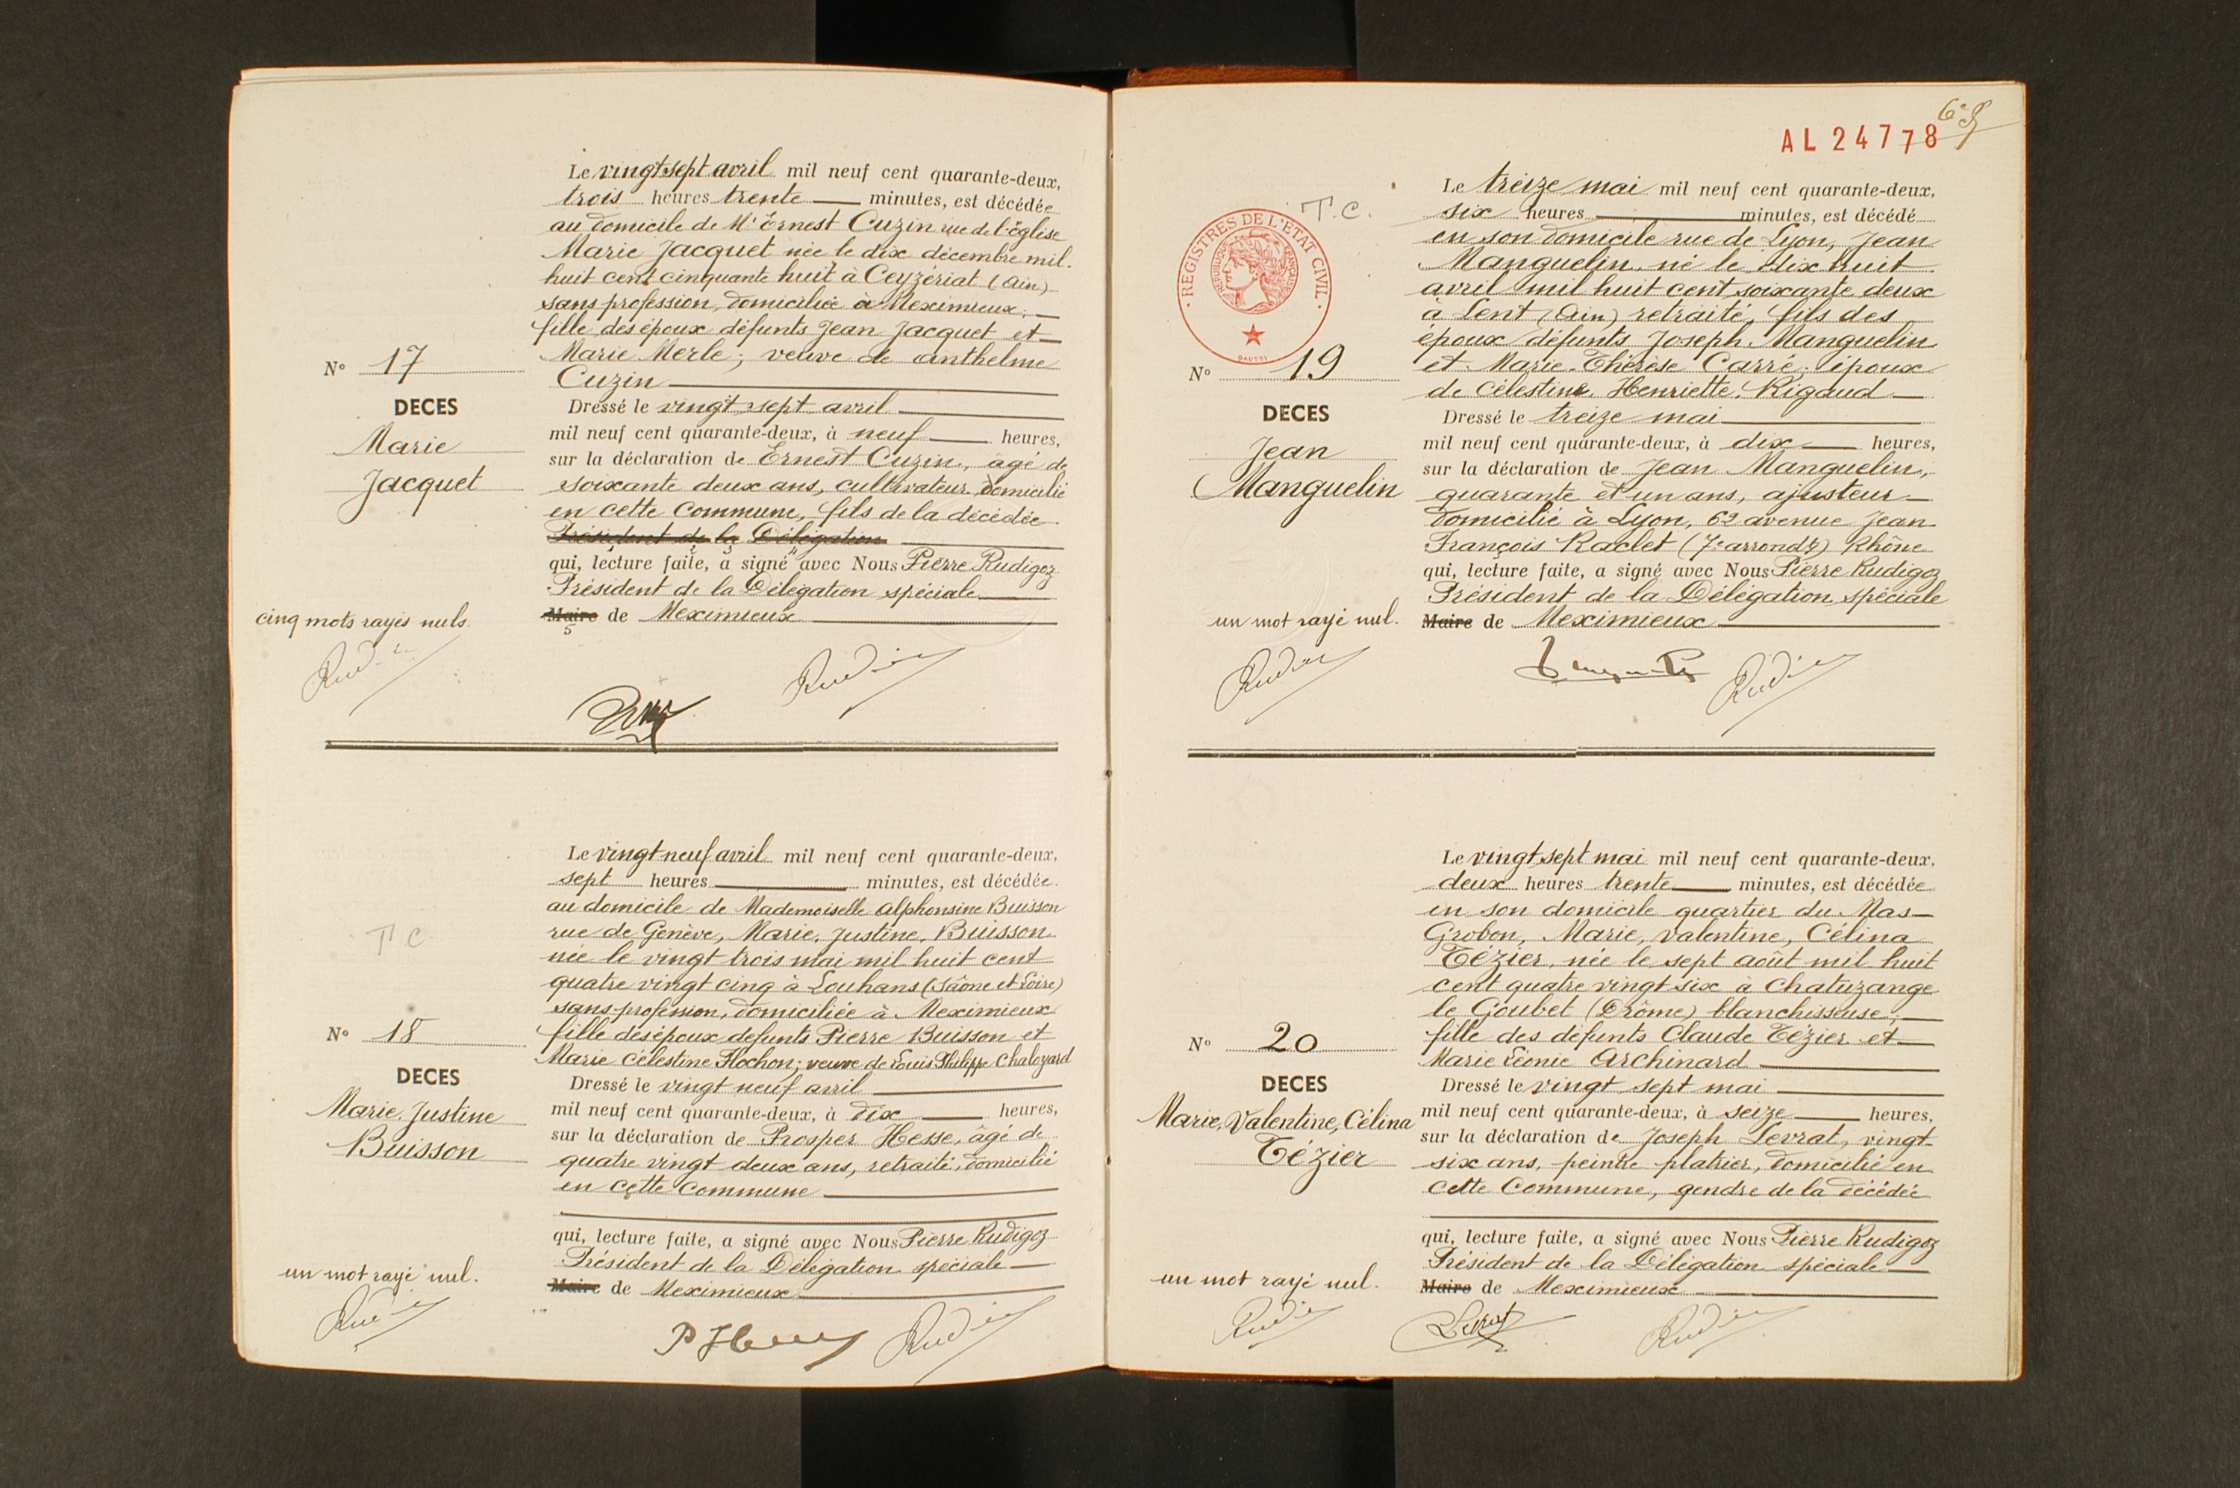 Le vingt sept avril mil neuf cent quarante-deux,
trois heures trente minutes, est décédée
au domicile de Mr Ernest Cuzin rue de l'Église
Marie Jacquet née le dix décembre mil
huit cent cinquante huit à Ceyzériat (Ain)
sans profession, domiciliée à Meximieux,
fille des époux défunts Jean Jacquet et
Marie Merle; veuve de Anthelme
Cuzin
N° 17
DECES
Marie
Jacquet
Dressé le vingt sept avril
mil neuf cent quarante-deux, à neuf heures,
sur la déclaration de Ernest Cuzin, âgé de
soixante deux ans, cultivateur, domicilié
en cette commune, fils de la décédée
Président de la Délégation
qui, lecture faite, a signé avec Nous Pierre Rudigoz
Président de la Délégation spéciale
Maire de Meximieux
5
cinq mots rayés nuls.
T C
Le vingt-neuf avril mil neuf cent quarante-deux,
sept heures minutes, est décédée
au domicile de Mademoiselle Alphonsine Buisson
rue de Genève, Marie, Justine, Buisson
née le vingt trois mai mil huit cent
quatre vingt cinq à Louhans (Saône et Loire)
sans profession, domiciliée à Meximieux
fille des époux défunts Pierre Buisson et
Marie Célestine Flochon; veuve de Louis Philippe Chaloyard
N° 18
DECES
Marie, Justine
Buisson
Dressé le vingt neuf avril
mil neuf cent quarante-deux, à dix heures,
sur la déclaration de Prosper Hesse, âgé de
quatre vingt deux ans, retraité, domicilié
en cette commune
qui, lecture faite, a signé avec Nous Pierre Rudigoz
Président de la Délégation spéciale
Maire de Meximieux
un mot rayé nul.
AL 24778
T.C.
REGISTRES DE L'ETAT CIVIL
REPUBLIQUE FRANÇAISE
Le treize mai mil neuf cent quarante-deux,
six heures minutes, est décédé
en son domicile rue de Lyon, Jean
Manguelin, né le dix huit
avril mil huit cent soixante deux
à Lent (Ain) retraité, fils des
époux défunts Joseph Manguelin
et Marie-Thérèse Carré; époux
de Célestine, Henriette, Rigaud
N° 19
DECES
Jean
Manguelin
Dressé le treize mai
mil neuf cent quarante-deux, à dix heures,
sur la déclaration de Jean Manguelin,
quarante et un ans, ajusteur
domicilié à Lyon, 62 avenue Jean
François Raclet (7e arrondt) Rhône
qui, lecture faite, a signé avec Nous Pierre Rudigoz
Président de la Délégation spéciale
Maire de Meximieux
un mot rayé nul.
Le vingt sept mai mil neuf cent quarante-deux,
deux heures trente minutes, est décédée
en son domicile quartier du Mas
Grobon, Marie, Valentine, Célina
Tézier, née le sept août mil huit
cent quatre vingt six à Chatuzange
le Goubet (Drôme) blanchisseuse,
fille des défunts Claude Tézier et
Marie Léonie Archinard
N° 20
DECES
Marie, Valentine, Célina
Tézier
Dressé le vingt sept mai
mil neuf cent quarante-deux, à seize heures,
sur la déclaration de Joseph Levrat, vingt
six ans, peintre platrier, domicilié en
cette Commune, gendre de la décédée
qui, lecture faite, a signé avec Nous Pierre Rudigoz
Président de la Délégation spéciale
Maire de Meximieux
un mot rayé nul.